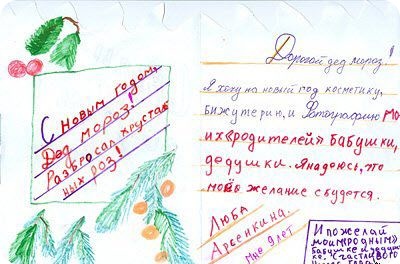 С новым годом,
Дед мороз!
Разбросал хрустал
ных роз!
Дорогой дед мороз!
Я хочу на новый год косметику,
бижутерию, и Фотографию мо
их «родителей» бабушки,
дедушки. Я надеюсь, что
моё желание сбудется.
Люба
Арсенкина.
мне 9 лет
И пожелай
моим «родным»
бабушке и дедуш
ке, счастливого